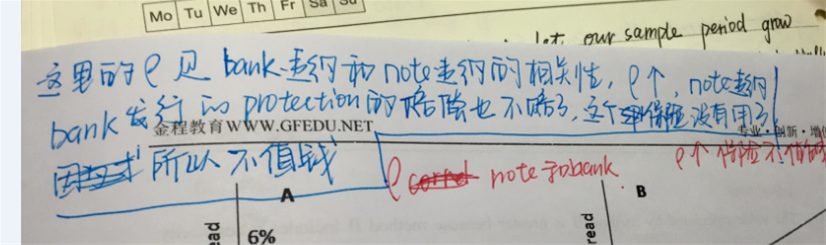 Mo Tu We Th Fr Sa Su
let our sample period grow
这里的ρ见bank违约和note违约的相关性，ρ↑，note违约
bank发行的protection的赔偿也不赔了，这个保险没有用了
金程教育WWW.GFEDU.NET
专业·创新·增值
所以不值钱
ρ note和bank
ρ↑保险不值钱
A
B
6%
read
read